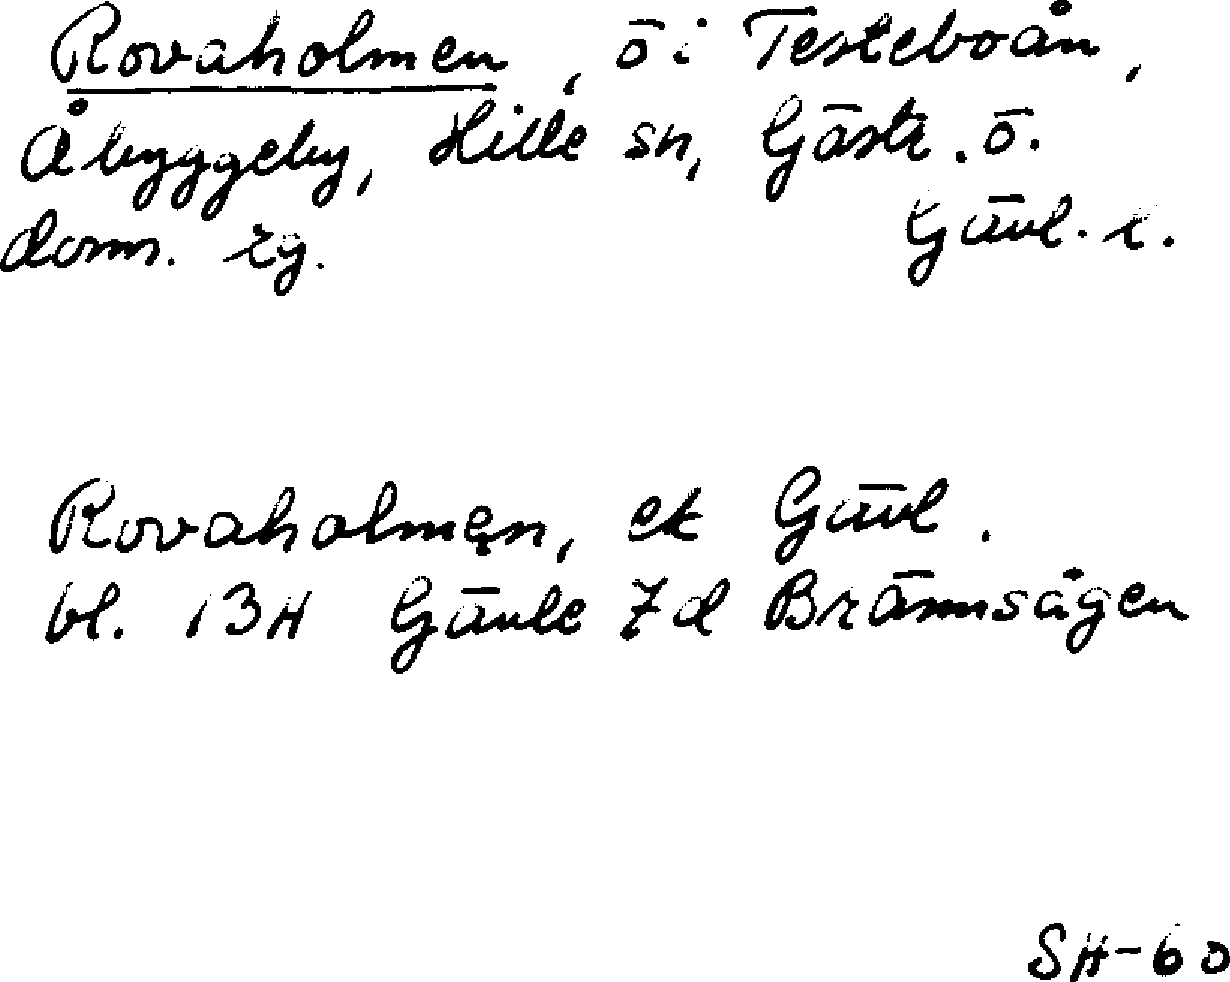 Rovaholmen, ö i Testeboån,
Åbyggeby, Hille sn, Gästr. ö.
doms. rg. Gävl. l.
Rovaholmęn, ek Gävl.
bl. 13H Gävle 7d Brännsågen
SH-60